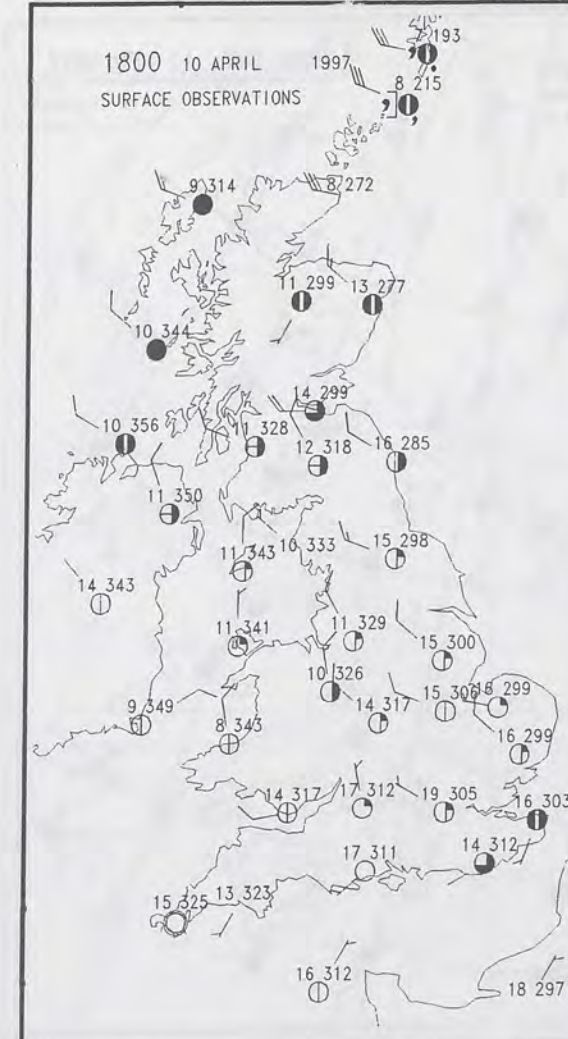 193
1800 10 APRIL 1997
8 215
SURFACE OBSERVATIONS
9 314
8 272
11 299
13 277
10 344
14 299
10 356
11 328
12 318
16 285
11 350
11 343
10 333
15 298
14 343
11 341
11 329
15 300
10 326
9 349
8 343
14 317
15 306
299
16 299
14 317
17 312
19 305
16 303
14 312
17 311
15 325
13 323
16 312
18 297